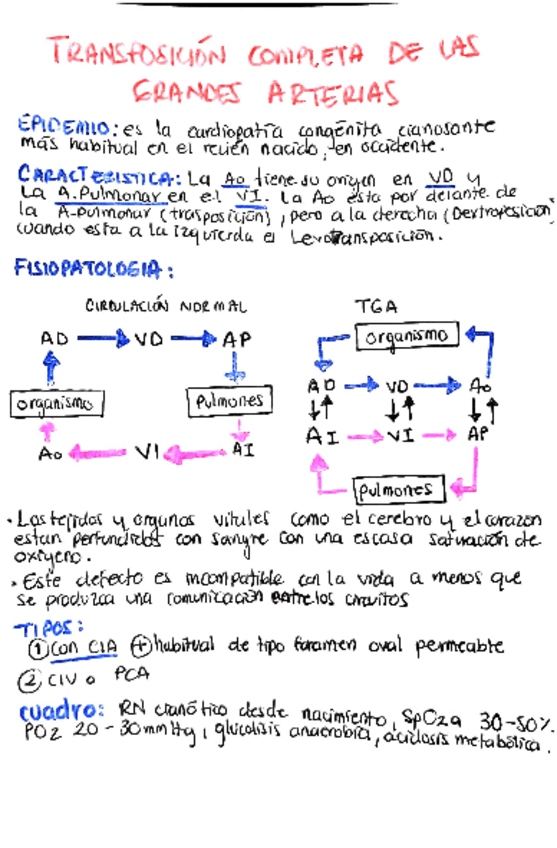 TRANSPOSICIÓN COMPLETA DE LAS
GRANDES ARTERIAS
EPIDEMIO: es la cardiopatía congénita cianosante
más habitual en el recien nacido, en occidente.
CARACTERISTICA: La Ao tiene su origen en VD y
La A. Pulmonar en el VI. La Ao esta por delante de
la A. pulmonar (trasposición), pero a la derecha (Dextroposición,
cuando esta a la izquierda es Levotransposición.
FISIOPATOLOGIA:
CIRCULACIÓN NORMAL
AD → VD → AP
organismo
Pulmones
Ao ← VI ← AI
TGA
organismo
AD → VD → Ao
AI → VI → AP
pulmones
• Los tejidos y organos vitales como el cerebro y el corazon
estan perfundidos con sangre con una escasa saturación de
oxigeno.
• Este defecto es incompatible con la vida a menos que
se produzca una comunicación entre los circuitos
TIPOS:
① con CIA ⊕ habitual de tipo foramen oval permeable
② CIV o PCA
cuadro: RN cianótico desde nacimiento, SpO2a 30-50%.
PO2 20-30mmHg, glucolisis anaerobia, acidosis metabolica.